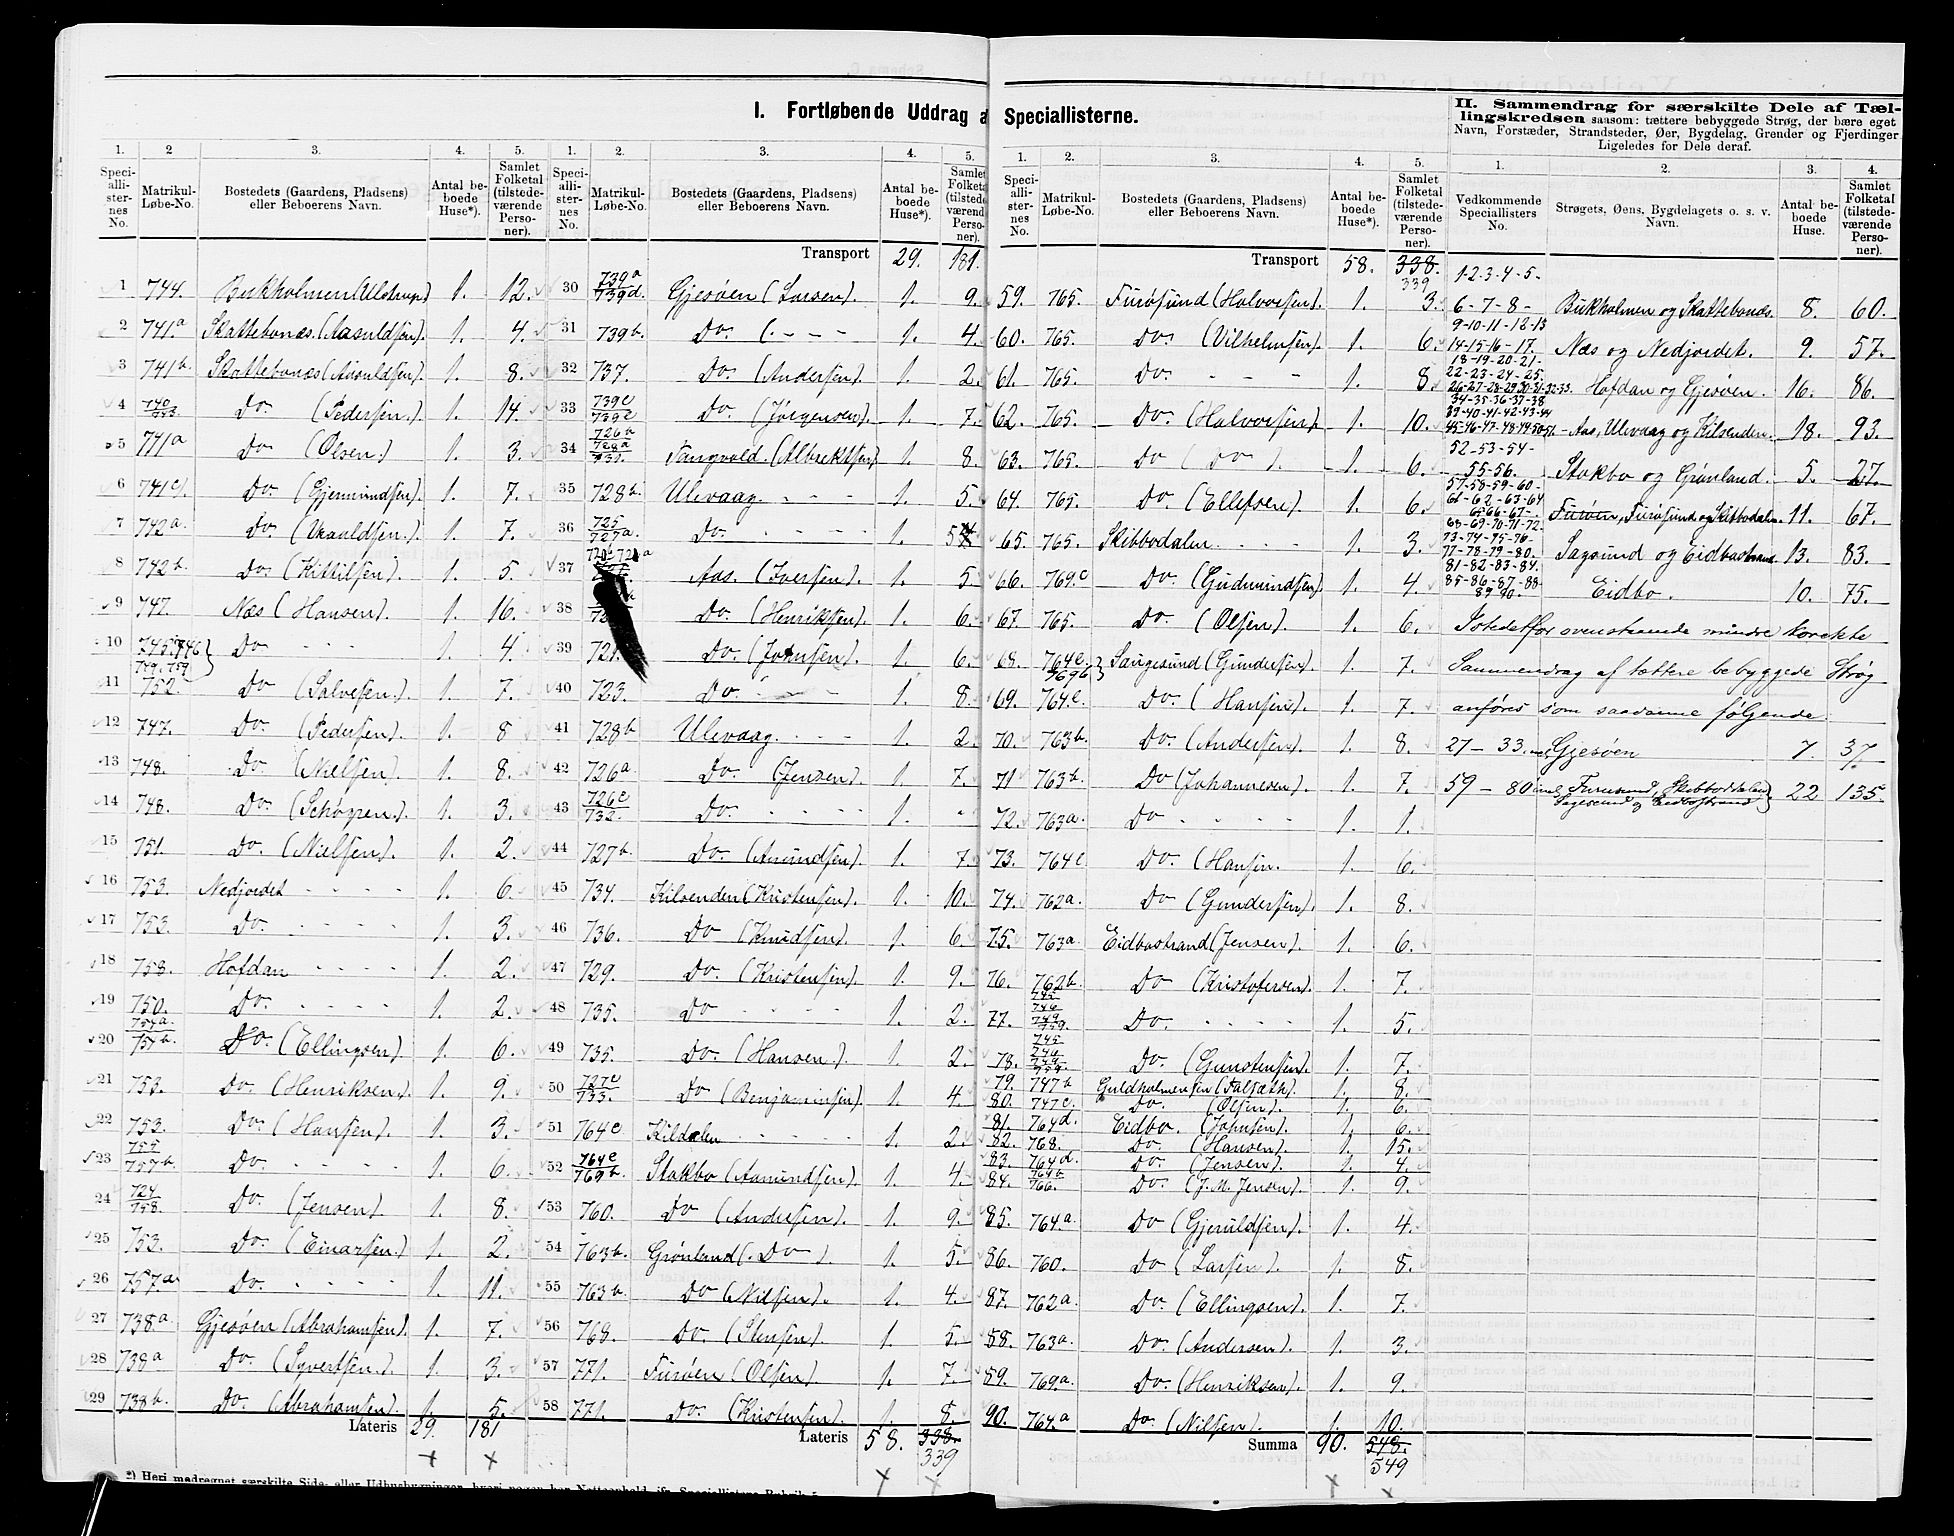 I. Fortløbende Uddrag a Speciallisterne.
II. Sammendrag for særskilte Dele af Tæl-
lingskredsen saasom: tættere bebyggede Strøg, der bære eget
Navn, Forstæder, Strandsteder, Øer, Bygdelag, Grender og Fjerdinger
Ligeledes for Dele deraf.
1. 2 3. 4. 5.
Speci-alli-ster-nes No. Matrikul-Løbe-No. Bostedets (Gaardens, Pladsen) eller Beboerens Navn. Antal be-boede Huse*). Samlet Folketal (tilstede-værende Perso-ner).
1 744. Birkholmen (Ulstrup) 1. 12.
2 741a Skattebonæs. (Aasuldsen). 1. 4.
3 741b. Skattebonæs (Aasuldsen). 1. 8.
4 740 Do. (Pedersen.) 1. 14.
5 741a Do (Olsen.) 1. 3.
6 741c. Do. (Gjermundsen). 1. 7.
7 742a. Do. 1. 7.
8 742b. Do. (Kittilsen). 1. 5.
9 747. Næs (Hansen). 1. 16.
10 745.746 749.759 Do 1. 4.
11 752. Do (Salvesen.) 1. 7.
12 747. Do (Pedersen). 1. 8
13 748. Do. (Nielsen). 1. 8.
14 748. Do. 1. 3.
15 751. Do. (Nielsen). 1. 2.
16 753. Nedjordet 1. 6.
17 753. Do. 1. 3.
18 758. Hofdan 1. 2.
19 750. Do. 1. 2.
20 754a. 757b. Do. (Ellingsen) 1. 6.
21 753. Do. (Henriksen.) 1. 9.
22 753. Do. (Hansen.) 1. 3.
23 755 757b. Do. 1. 6.
24 724 758 Do. (Jensen) 1. 8.
25 753. Do. (Einarsen.) 1. 2.
26 757a Do. 1. 11.
27 738a. Gjesøen (Abrahamsen). 1. 7.
28 738a Do. (Syvertsen.) 1. 3.
29 738b. Do. (Abrahamsen) 1. 5.
Lateris 29. 181
1. 2. 3. 4. 5.
Speci-alli-ster-nes No. Matrikul-Løbe-No. Bostedets (Gaardens, Pladsens) eller Beboerens Navn. Antal be-boede Huse*). Samlet Folketa (tilstede værende Perso-ner).
Transport 29. 181.
30 739a 739d. Gjesøen (Larsen). 1. 9.
31 739b. Do. 1. 4.
32 737. Do. (Andersen). 1. 2.
33 739c 739e Do. (Jørgensen). 1. 7.
34 726b 728a 731. Tangvald. (Albrektsen) 1. 8.
35 728b. Ulevaag 1. 5.
36 725 727a. Do. 1. 5
37 Aas. (Iversen). 1. 5.
38 Do. (Henriksen). 1. 6.
39 721. Do. (Johnsen). 1. 6.
40 723. Do. 1. 8.
41 728b Ulevaag 1. 2.
42 726a Do. (Jensen) 1. 7.
43 726c 732. Do. 1.
44 727b. Do. (Amundsen) 1. 7.
45 734. Kilsenden (Kristensen). 1. 10.
46 736. Do (Knudsen). 1. 6
47 729. Do. (Kristensen) 1. 9.
48 735. Do 1. 2.
49 735. Do. (Hansen.) 1. 2.
50 727c 733. Do (Benjaminsen). 1. 4.
51 764c Kildalen 1. 2.
52 764c 769b. Stokbo (Aamundsen) 1. 4.
53 760. Do (Andersen). 1. 9.
54 763b. Grønland (Do) 1. 5.
55 763b. Do (Nilsen). 1. 4.
56 768. Do. (Stensen) 1. 5.
57 771. Furøen (Olsen) 1. 7.
58 771. Do. (Kristensen) 1. 8.
Lateris 58. 338. 339
1. 2. 3. 4. 5.
Speci-alli-ster-nes No. Matrikul-Løbe-No. Bostedets (Gaardens, Pladsens) eller Beboerens Navn. Antal be-boede Huse*). Samlet Folketal (tilstede-værende Perso-ner).
Transport 58. 338. 339
59. 765. Furøsund (Halvorsen). 1. 3.
60. 765. Do. (Vilhelmsen). 1. 6.
61. 765. Do. 1. 8
62. 765. Do. (Halvorsen) 1. 10.
63. 765. Do (Do). 1. 6.
64. 765. Do (Ellefsen). 1. 6.
65. 765. Skibbodalen 1. 3.
66. 769.c Do. (Gudmundsen) 1. 4.
67. 765. Do. (Olsen). 1. 6.
68. 764c. 769b Saugesund (Gundersen) 1. 7.
69. 764c. Do. (Hansen). 1. 7.
70. 763b. Do. (Andersen) 1. 8.
71 763b. Do (Johannesen) 1. 7.
72. 763a. Do 1. 1.
73. 764c Do. (Hansen. 1. 6.
74. 762a. Do (Gundersen) 1. 8.
75. 763a Eidbostrand (Jensen). 1. 6.
76. 762b. Do (Kristofersen) 1. 7.
77. 745 746 749 759. Do. 1. 5.
78. 745 749 759. Do. (Gunstensen). 1. 7.
79. 747b Guldholmen 1. 8.
80. 747c. Do. (Olsen). 1. 6.
81. 764d. Eidbo. (Johnsen). 1. 6.
82. 768. Do. (Hansen). 1. 15.
83. 764d. Do. (Jensen) 1. 4.
84. 764b 766. Do. (J. M. Jensen). 1. 9.
85. 764a. Do (Gjeruldsen). 1. 4.
86. 760. Do (Larsen). 1. 8.
87. 762a. Do. (Ellingsen). 1. 7.
88. 763a. Do. (Andersen). 1. 3.
89. 769a. Do. (Henriksen). 1. 9.
90. 764a Do. (Nilsen). 1. 10.
Summa 90. 548. 549
1. 2. 3. 4.
Vedkommende Speciallisters No. Strøgets, Øens, Bygdelagets o. s. v. Navn. Antal be-boede Huse. Samlet Folketal (tilstede-værende Perso-ner).
1-2-3-4-5-
6-7-8- Birkholmen og Skattebonæs. 8. 60.
9-10-11-12-13
14-15-16-17. Næs og Nedjordet. 9. 57.
18-19-20-21-
22-23-24-25
26-27-28-29-30-31-32-33. Hofdan og Gjesøen. 16. 86.
34-35-36-37-38
39-40-41-42-43-44
45-46-47-48-49-50-51- Aas, Ulevaag og Kilsenden. 18. 93.
52-53-54-
55-56. Stokbo og Grønland. 5. 27.
57-58-59-60-
61-62-63-64
65-66-67- Furøen, Furøsund og Skibbodalen. 11. 67.
68-69-70-71-72-
73-74-75-76-
77-78-79-80. Sagsund og Eidbostrand 13. 83.
81-82-83-84.
85-86-87-88
89 90. Eidbo. 10. 75.
Istedetfor ovenstaaende mindre korekte
Sammendrag af tættere bebyggede Strøg
anføres som saadanne følgende
27-33 Gjesøen 7. 37.
59-80 incl Furusund, Skibbodalen, Sagesund og Eidbostrand 22 135.
*) Heri medregnet særskilte Side- eller Udhusbygninger, hvori nogen har Natteophold, jfr. Speciallistens Rubrik 5.